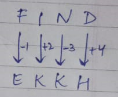 F I N D
-1 +2 -3 +4
E K K H